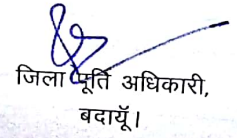 जिला पूर्ति अधिकारी,
बदायूँ।